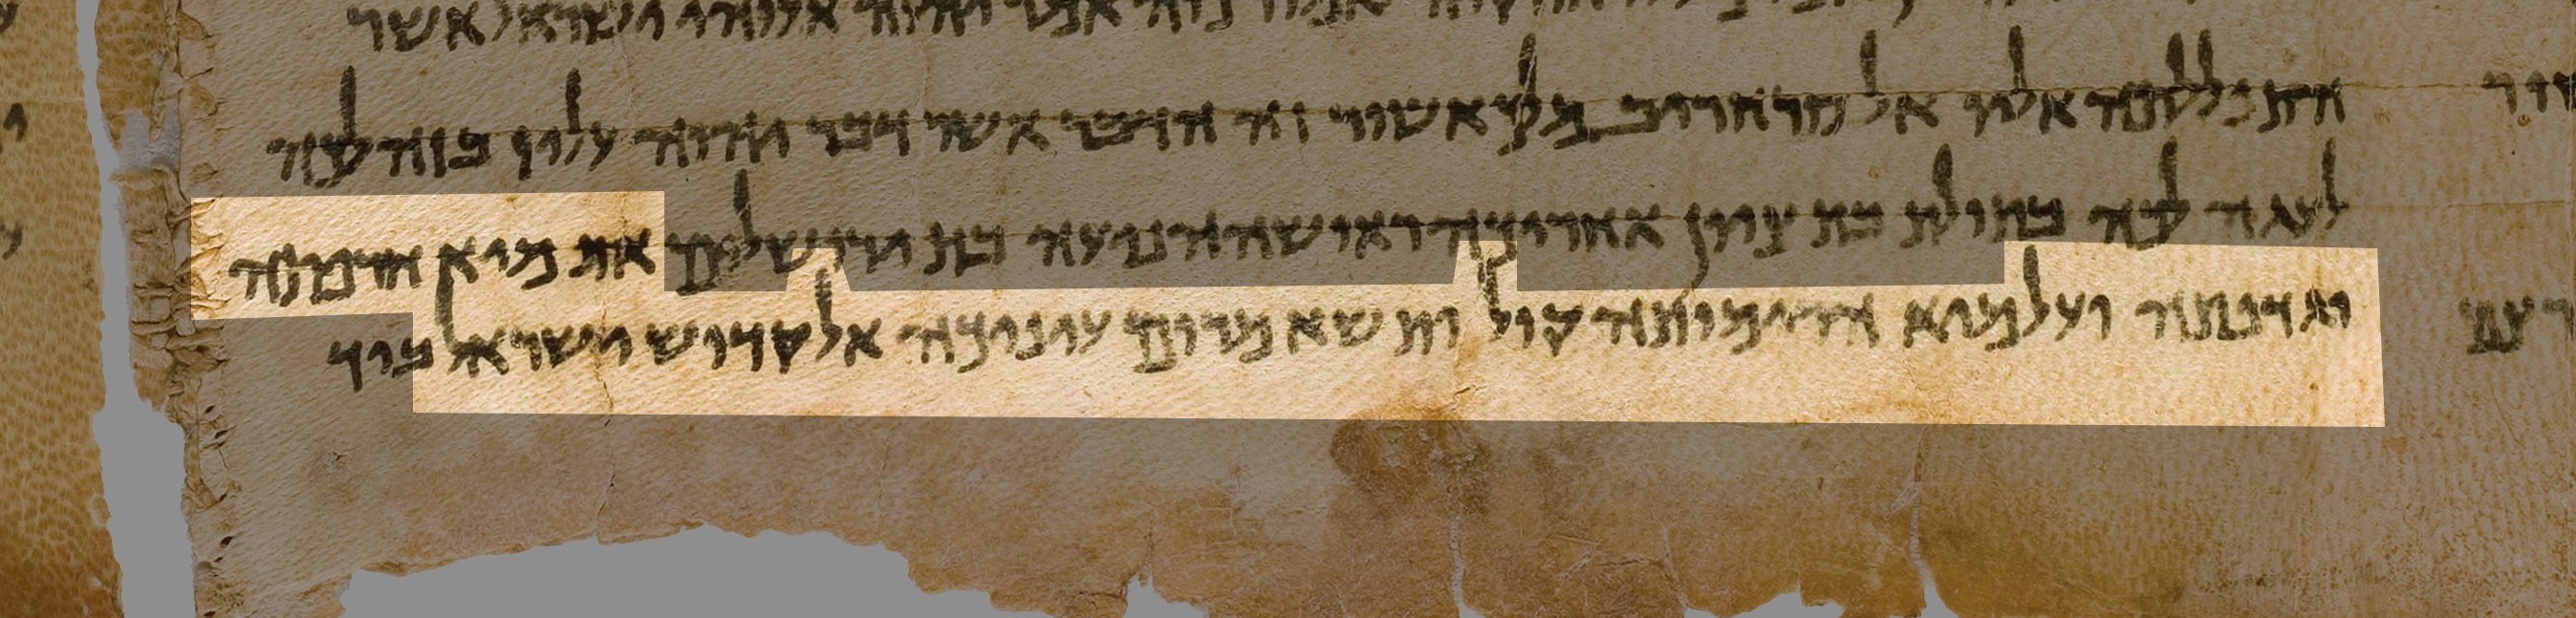 אמר יהוה אלוהי ישראל אשר
התפללתה אליו אל סנחריב מלך אשור זה הדבר אשר דבר יהוה עליו בזה לכה
לעגה לכה בתולת בת ציון אחריכה ראושה הניעה בת ירושלים את מיא חרפתה
וגדפתה ועל מיא הרימותה קול ותשא מרום עיניכה אל קדוש ישראל ביד